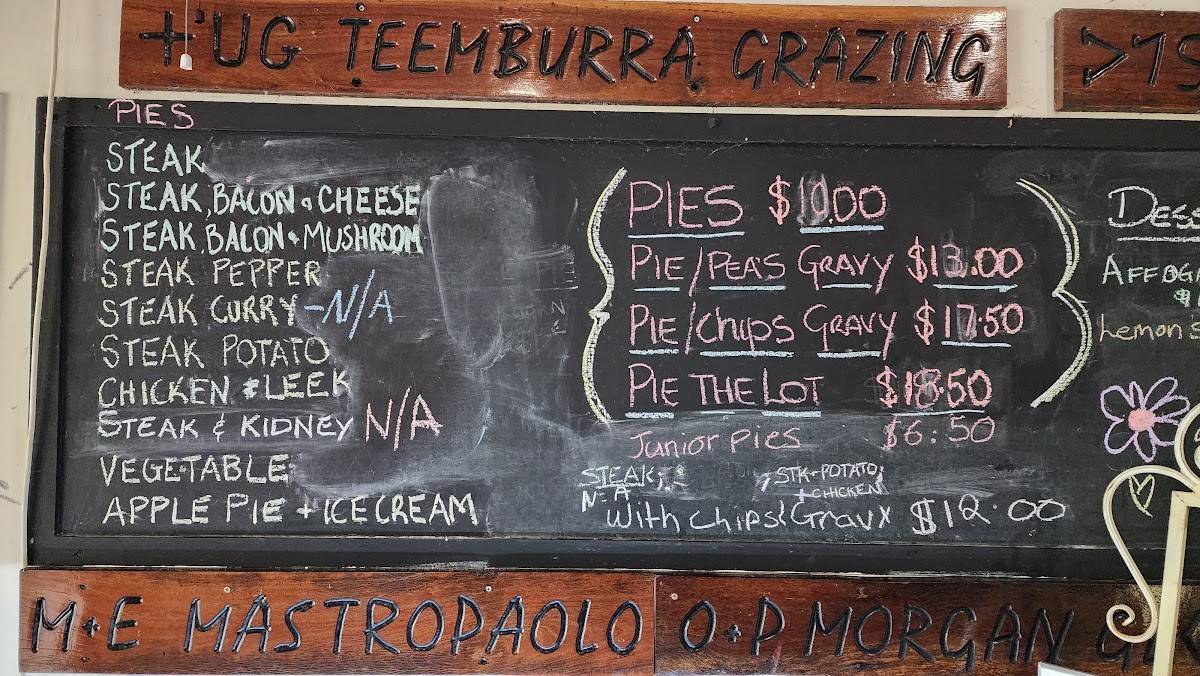 + UG TEEMBURRA GRAZING
PIES
STEAK
STEAK, BACON & CHEESE
STEAK, BACON & MUSHROOM
STEAK PEPPER
STEAK CURRY - N/A
STEAK POTATO
CHICKEN & LEEK
STEAK & KIDNEY N/A
VEGETABLE
APPLE PIE + ICE CREAM
PIES $10.00
PIE/PEAS GRAVY $13.00
PIE/CHIPS GRAVY $17.50
PIE THE LOT $18.50
JUNIOR PIES $6.50
STEAK; STK-POTATO;
N-A +CHICKEN
With chips & Gravy $12.00
AFFOG
$
Lemon
M+E MASTROPAOLO
O+P MORGAN